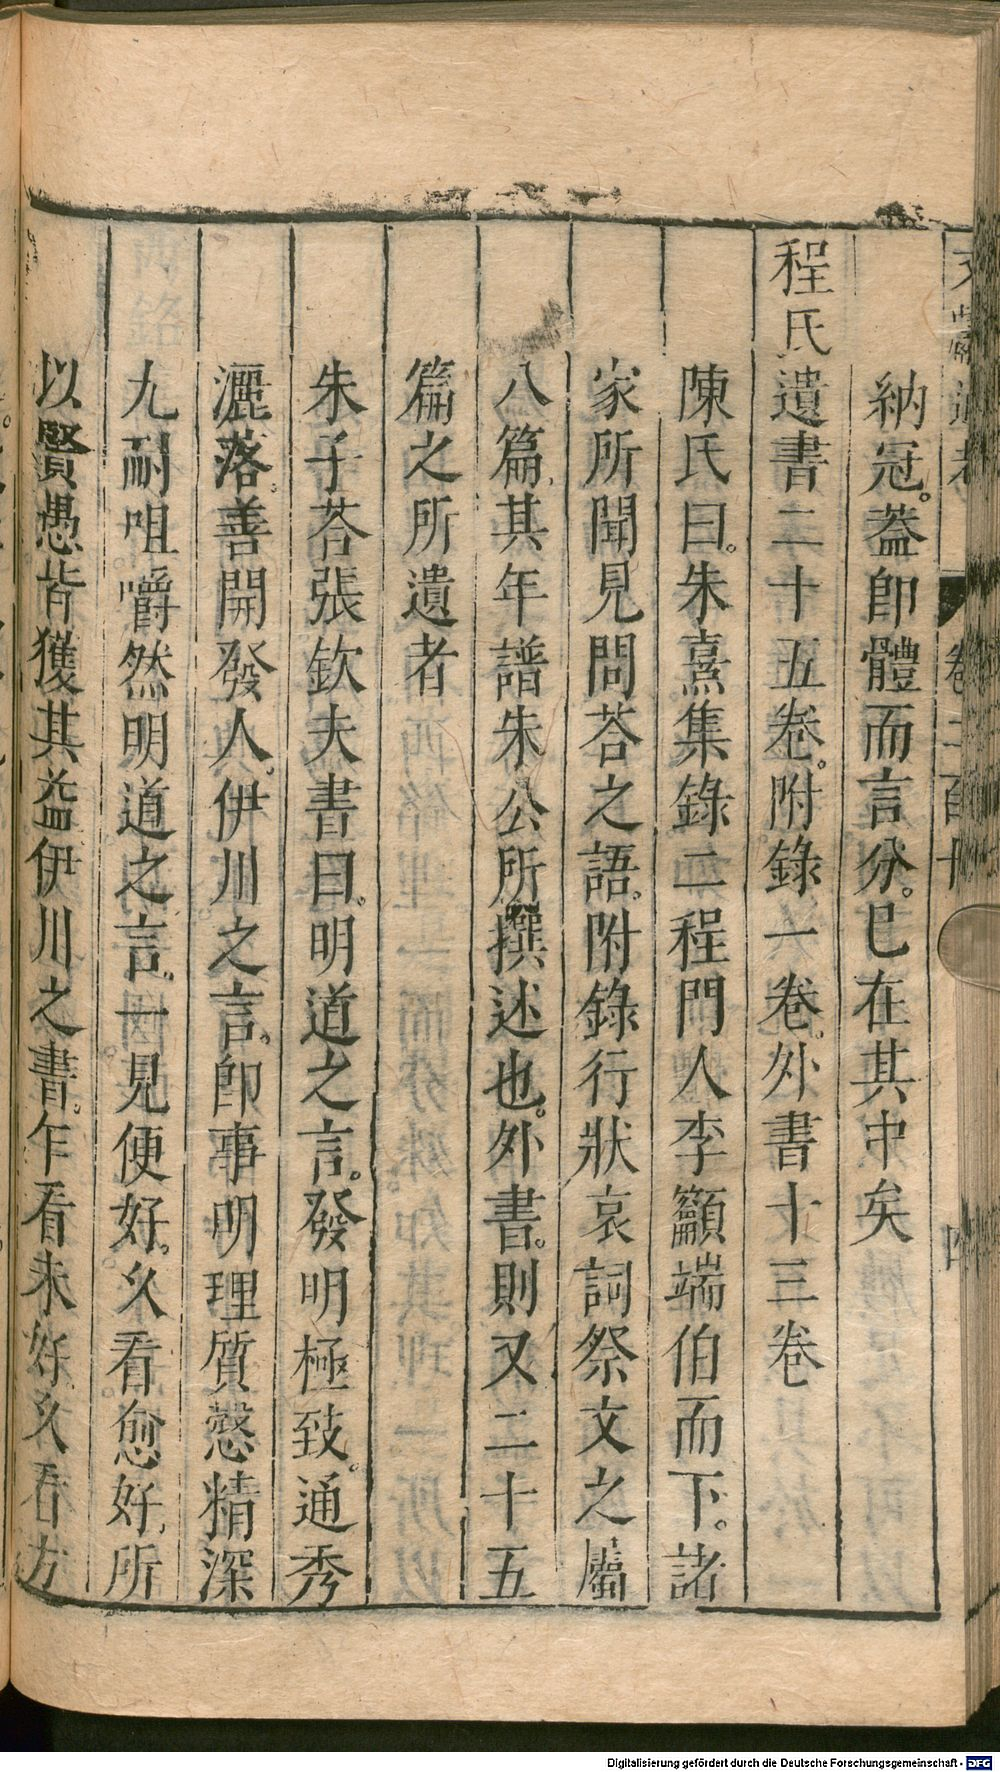 文獻通考 卷二百十
納冠。葢即體而言分。已在其中矣
程氏遺書二十五卷。附錄一卷。外書十三卷
陳氏曰。朱熹集錄二程門人李籲端伯而下。諸
家所聞見問荅之語。附錄行狀哀詞祭文之屬
八篇。其年譜朱公所撰述也。外書。則又二十五
篇之所遺者
朱子荅張欽夫書曰。明道之言。發明極致。通秀
灑落。善開發人。伊川之言。即事明理質愨精深
尤耐咀嚼然明道之言。一見便好。久看愈好。所
以賢愚皆獲其益伊川之書。乍看未好。久看方
Digitalisierung gefördert durch die Deutsche Forschungsgemeinschaft - DFG